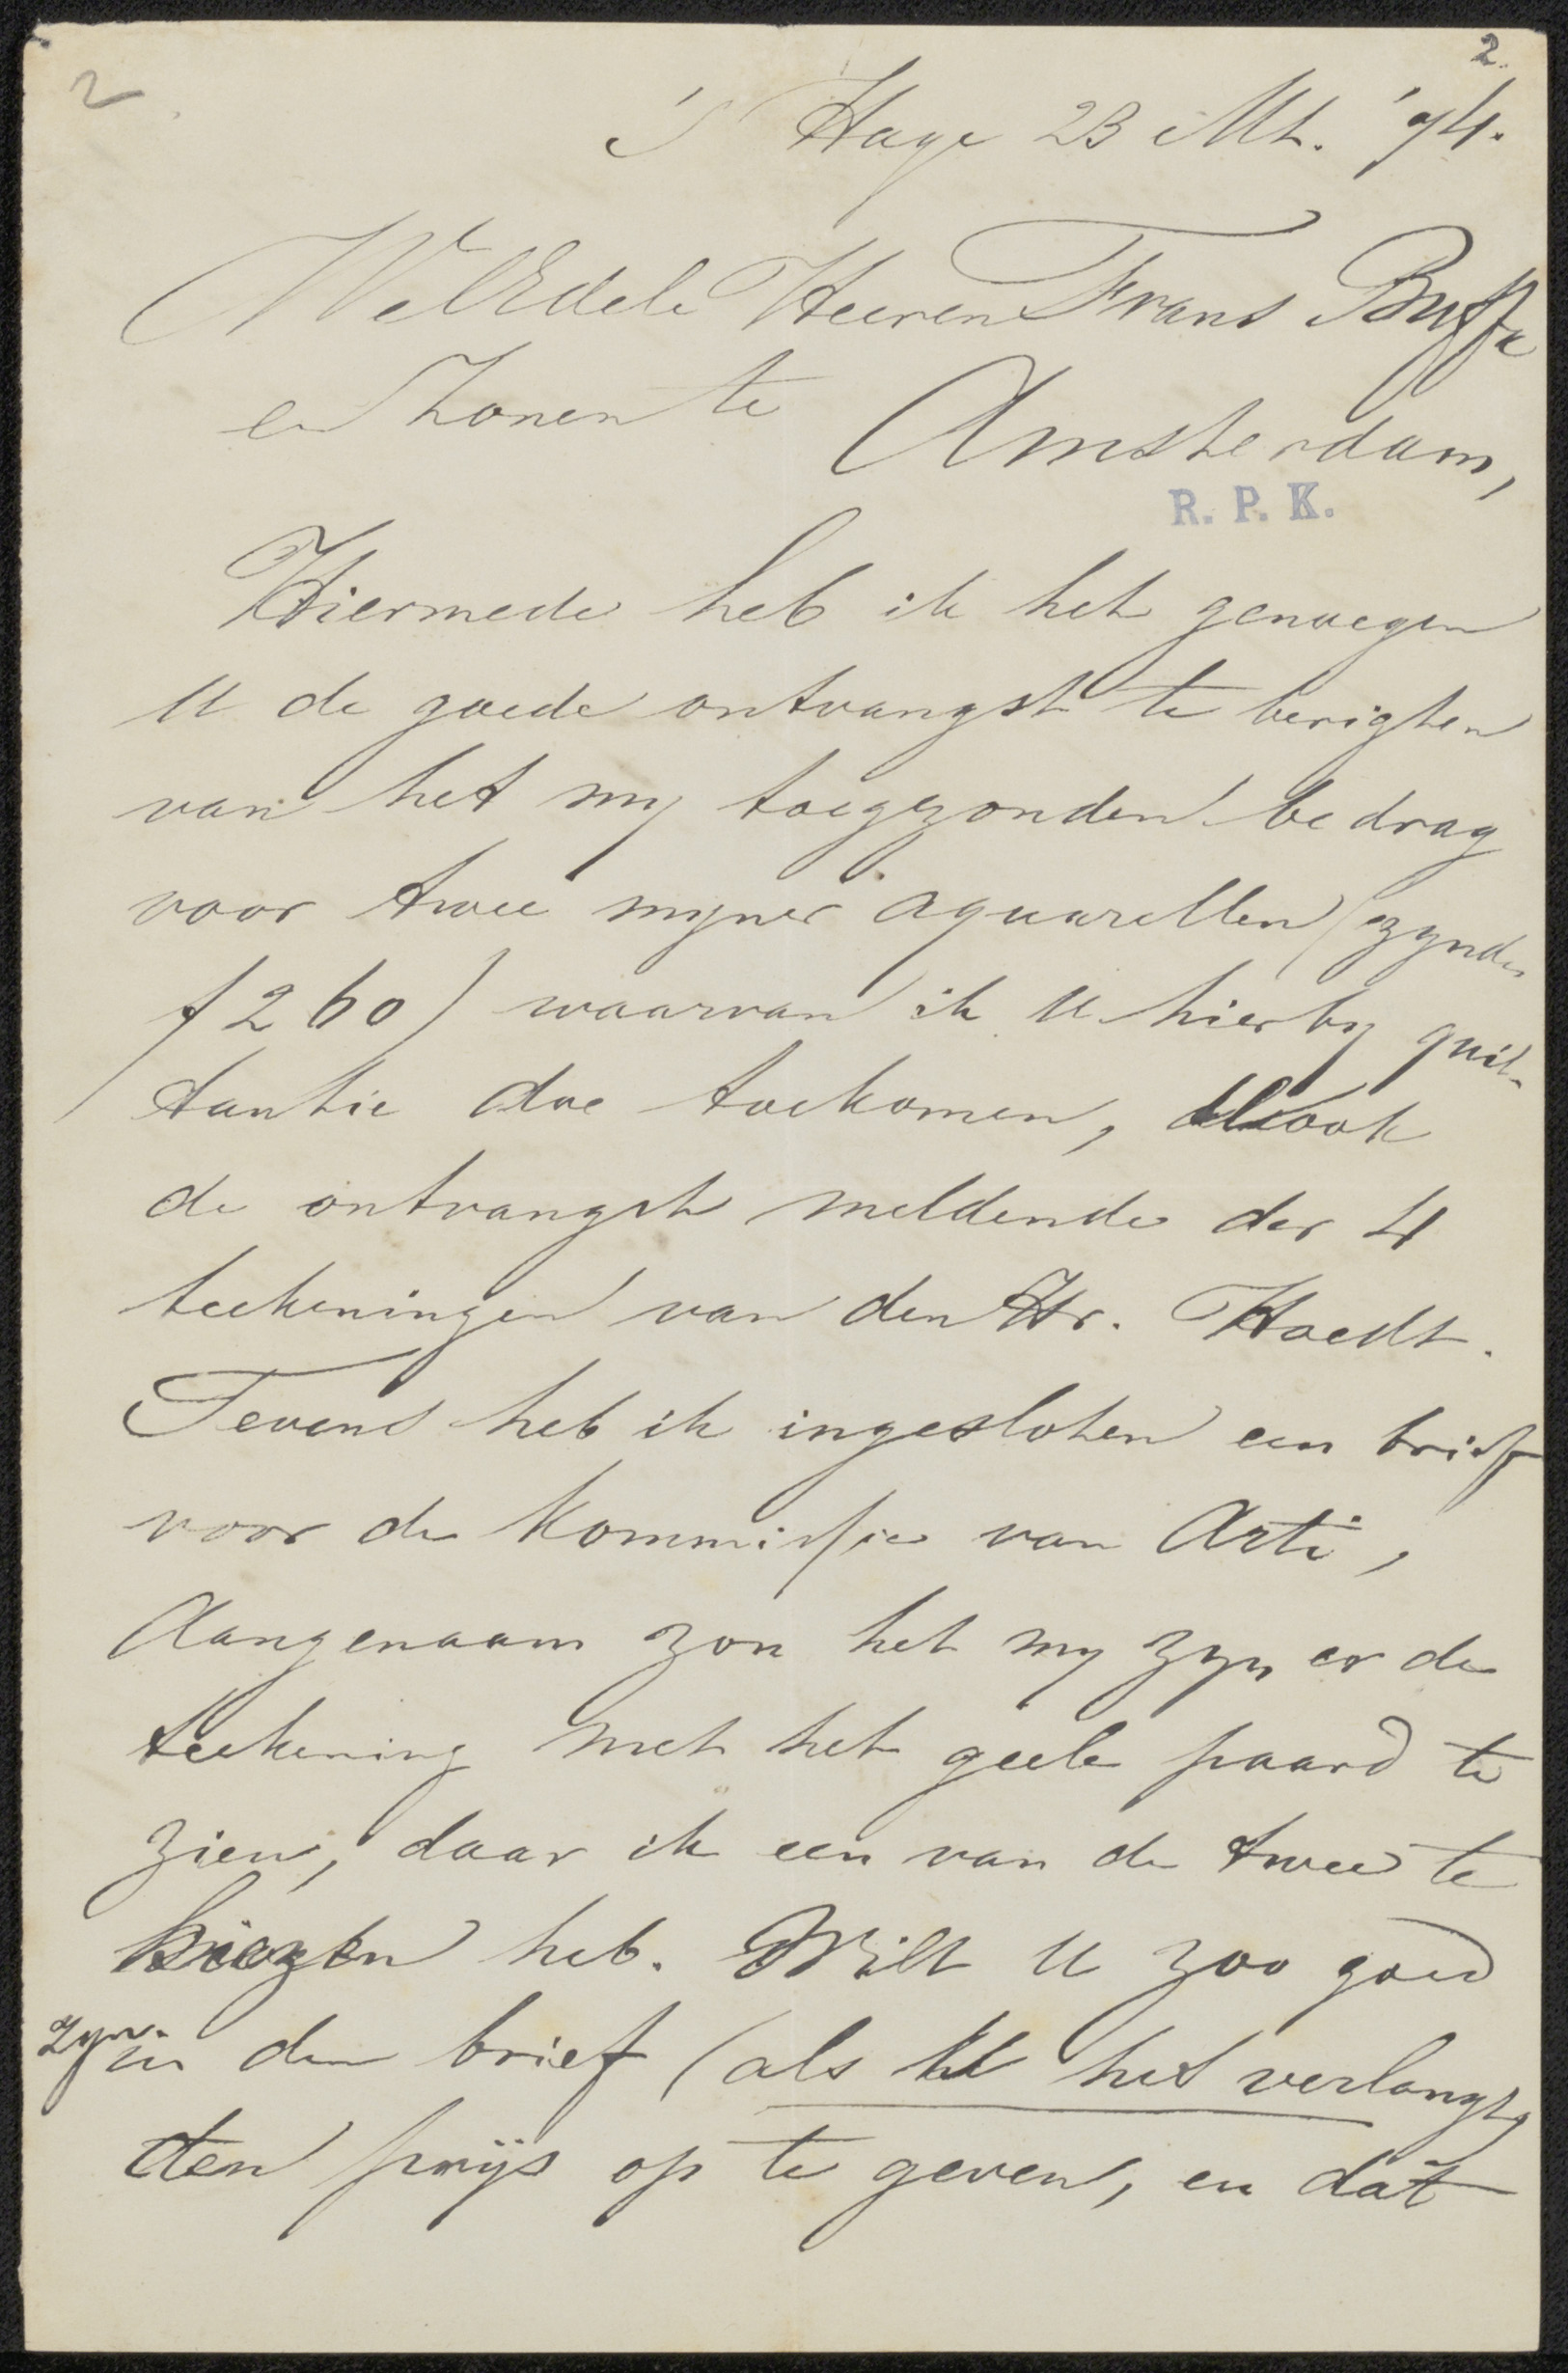 2
2.
's Hage 23 Mt. '74.
WelEdele Heeren Frans Buffa
en Zonen te
Amsterdam,
R. P. K.
Hiermede heb ik het genoegen
U de goede ontvangst te berigten
van het my toegezonden bedrag
voor twee myner aquarellen (zynde
f 260) waarvan ik U hierby quit-
tantie doe toekomen, alsook
de ontvangst meldende der 4
teekeningen van den Hr. Hoedt.
Tevens heb ik ingesloten een brief
voor de Kommissie van Arti,
Aangenaam zou het my zyn er de
teekening met het geele paard te
zien, daar ik een van de twee te
kiezen heb. Wilt U zoo goed
zyn in den brief (als U het verlangt)
den prijs op te geven, en dat